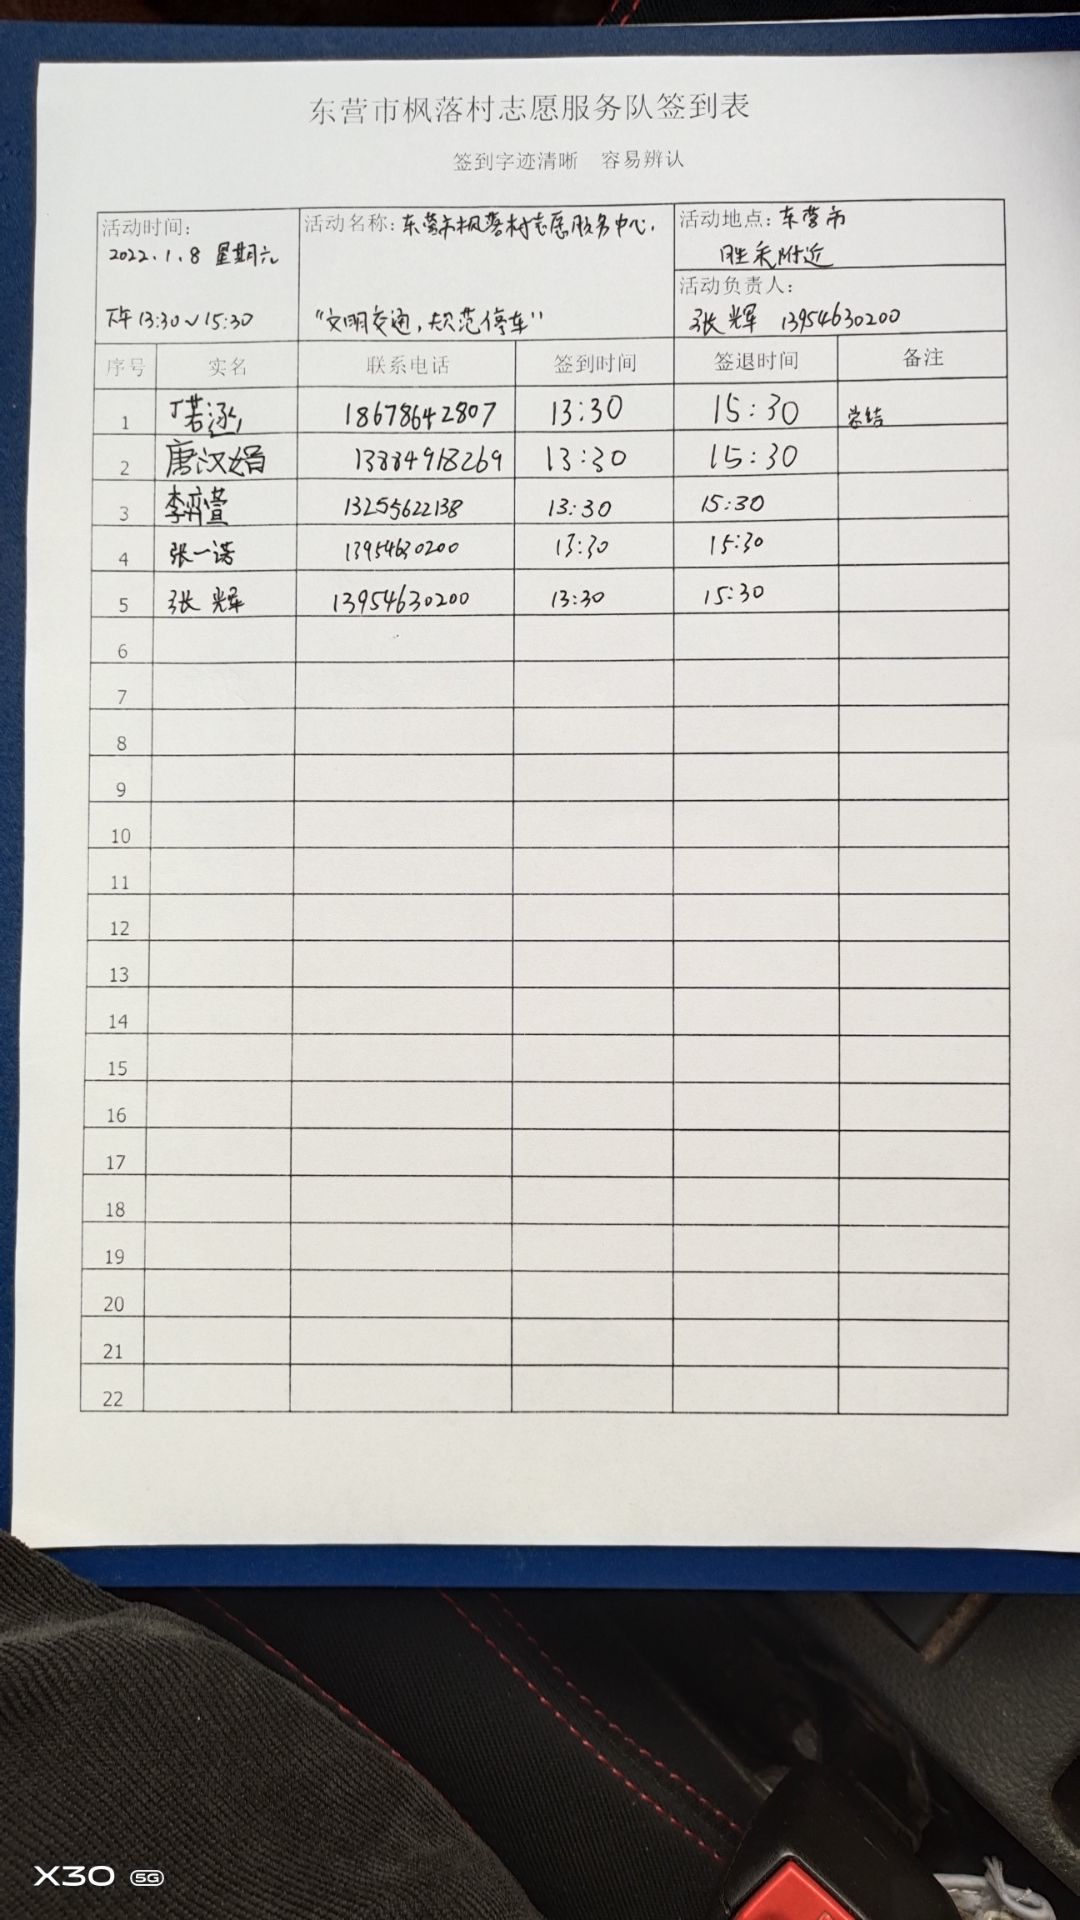 东营市枫落村志愿服务队签到表
签到字迹清晰 容易辨认
活动时间:
2022.1.8 星期六
下午13:30~15:30
活动名称:东营市枫落村志愿服务中心.
"文明交通,规范停车"
活动地点:东营市
胜采附近
活动负责人:
张辉 13954630200
序号 实名 联系电话 签到时间 签退时间 备注
1 丁若泓 18678642807 13:30 15:30 总结
2 唐汉娟 13884918269 13:30 15:30
3 李霈萱 13255622138 13:30 15:30
4 张一诺 13954630200 13:30 15:30
5 张辉 13954630200 13:30 15:30
6
7
8
9
10
11
12
13
14
15
16
17
18
19
20
21
22
X30 5G